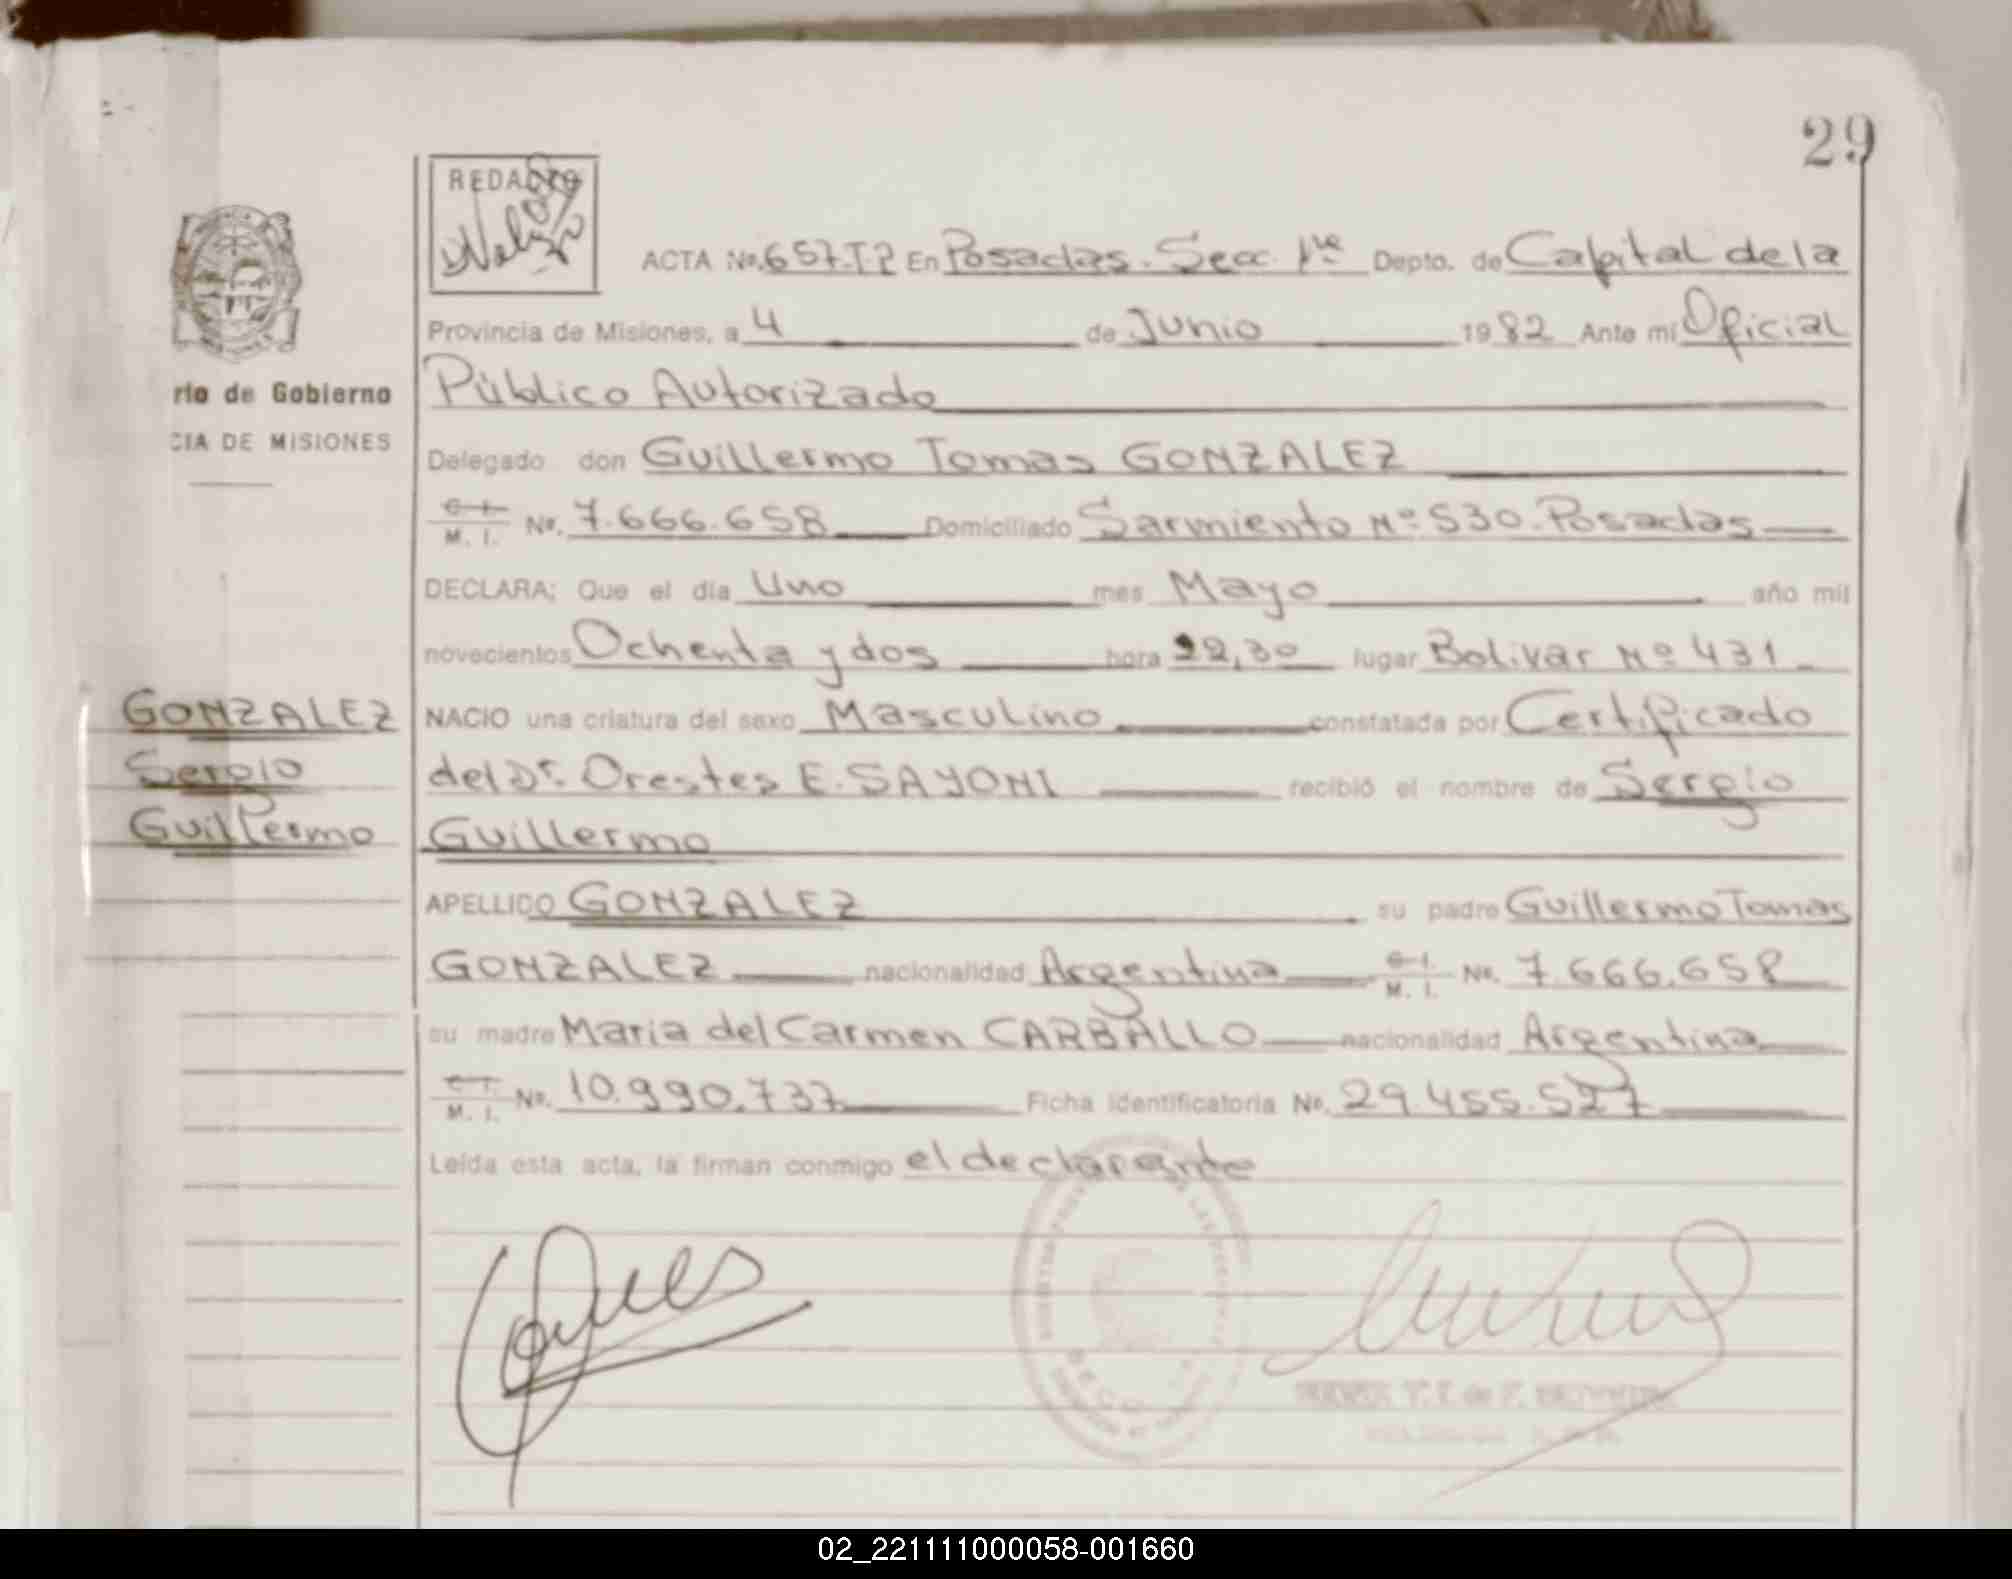 29
REDACTO
ACTA No. 657-T2 En Posadas. Secc. 1ra Depto. de Capital de la
Provincia de Misiones, a 4 de Junio 1982 Ante mi Oficial
rio de Gobierno
Público Autorizado
CIA DE MISIONES
Delegado don Guillermo Tomas GONZALEZ
C. I. M. I. No. 7.666.658 Domiciliado Sarmiento Nº 530. Posadas
DECLARA; Que el día Uno mes Mayo año mil
novecientos Ochenta y dos hora 22,30 lugar Bolivar Nº 431
GONZALEZ
NACIO una criatura del sexo Masculino constatada por Certificado
Sergio
del Dr. Orestes E. SAYONI recibió el nombre de Sergio
Guillermo
Guillermo
APELLIDO GONZALEZ su padre Guillermo Tomas
GONZALEZ nacionalidad Argentina C. I. M. I. No. 7.666.658
su madre Maria del Carmen CARBALLO nacionalidad Argentina
C. I. M. I. No. 10.990.737 Ficha identificatoria No. 29.455.527
Leída esta acta, la firman conmigo el declarante
02_221111000058-001660